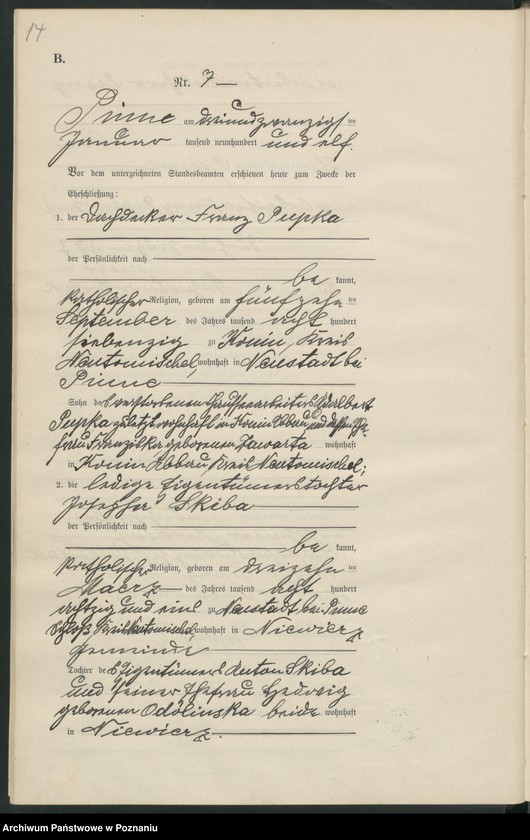 14
B.
Nr. 7
Pinne am dreiundzwanzigs ten
Januar tausend neunhundert und elf.
Vor dem unterzeichneten Standesbeamten erschienen heute zum Zwecke der
Eheschließung:
1. der Dachdecker Franz Pupka
der Persönlichkeit nach
be kannt,
katholischer Religion, geboren am fünfzehn ten
September des Jahres tausend acht hundert
siebenzig zu Konin, Kreis
Neutomischel, wohnhaft in Neustadt bei
Pinne
Sohn des verstorbenen Chausseearbeiters Adalbert
Pupka zuletzt wohnhaft in Konin Abbau und dessen Ehe
frau Franziska geborenen Jawarta wohnhaft
in Konin Abbau Kreis Neutomischel;
2. die ledige Eigentümerstochter
Josefa Skiba
der Persönlichkeit nach
be kannt,
katholischer Religion, geboren am dreizehn ten
Maerz des Jahres tausend acht hundert
achtzig und eins zu Neustadt bei Pinne
Schloß Kreis Neutomischel, wohnhaft in Niewierz
Gemeinde
Tochter des Eigentümers Anton Skiba
und seiner Ehefrau Hedwig
geborenen Odolinska beide wohnhaft
in Niewierz.
Archiwum Państwowe w Poznaniu